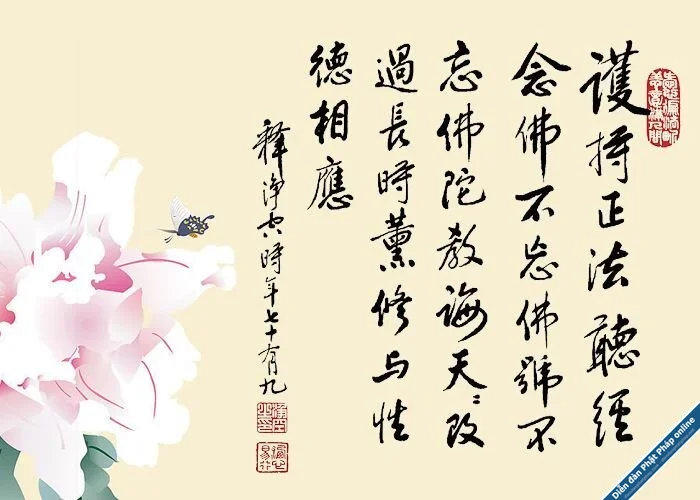 護持正法聽經
念佛不忘佛號不
忘佛陀教誨天〻改
過長時薰修与性
德相應
釋淨空時年七十有九
Diễn đàn Phật Pháp online